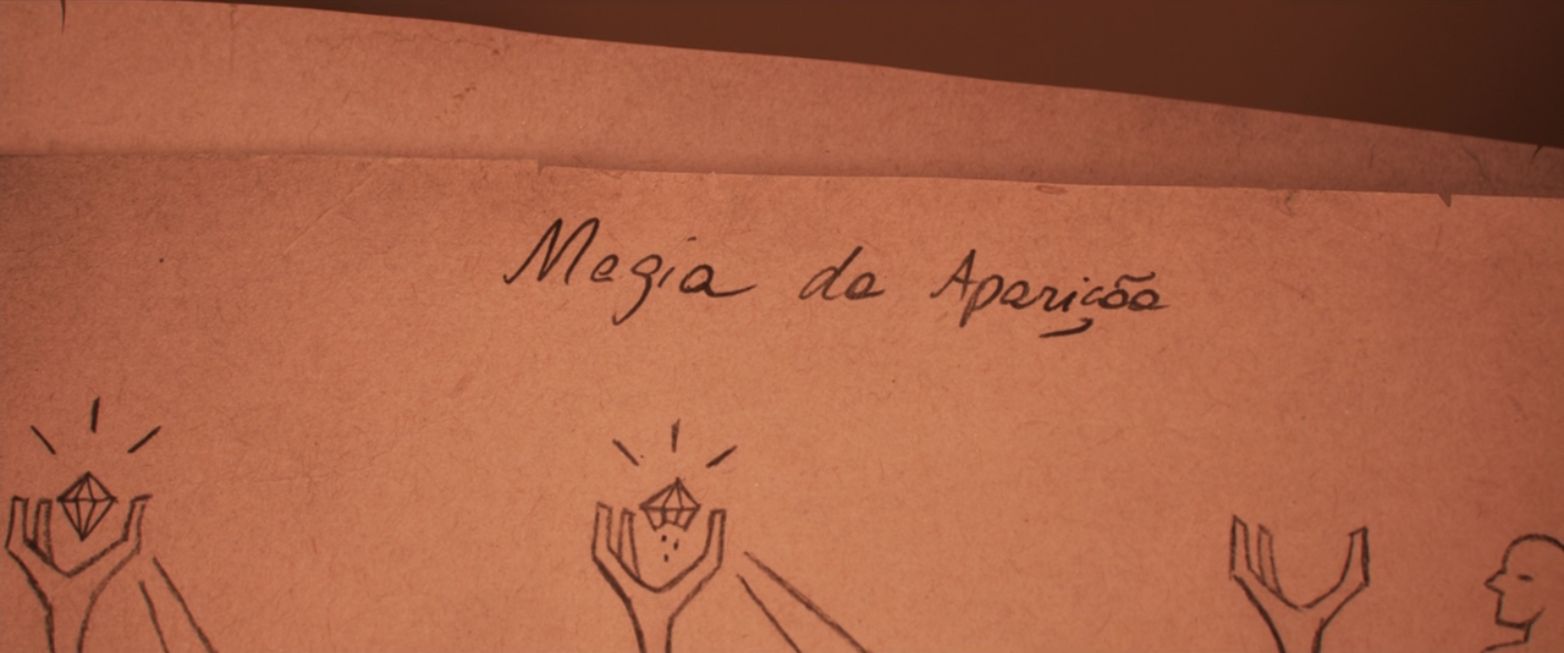 Magia da Aparição